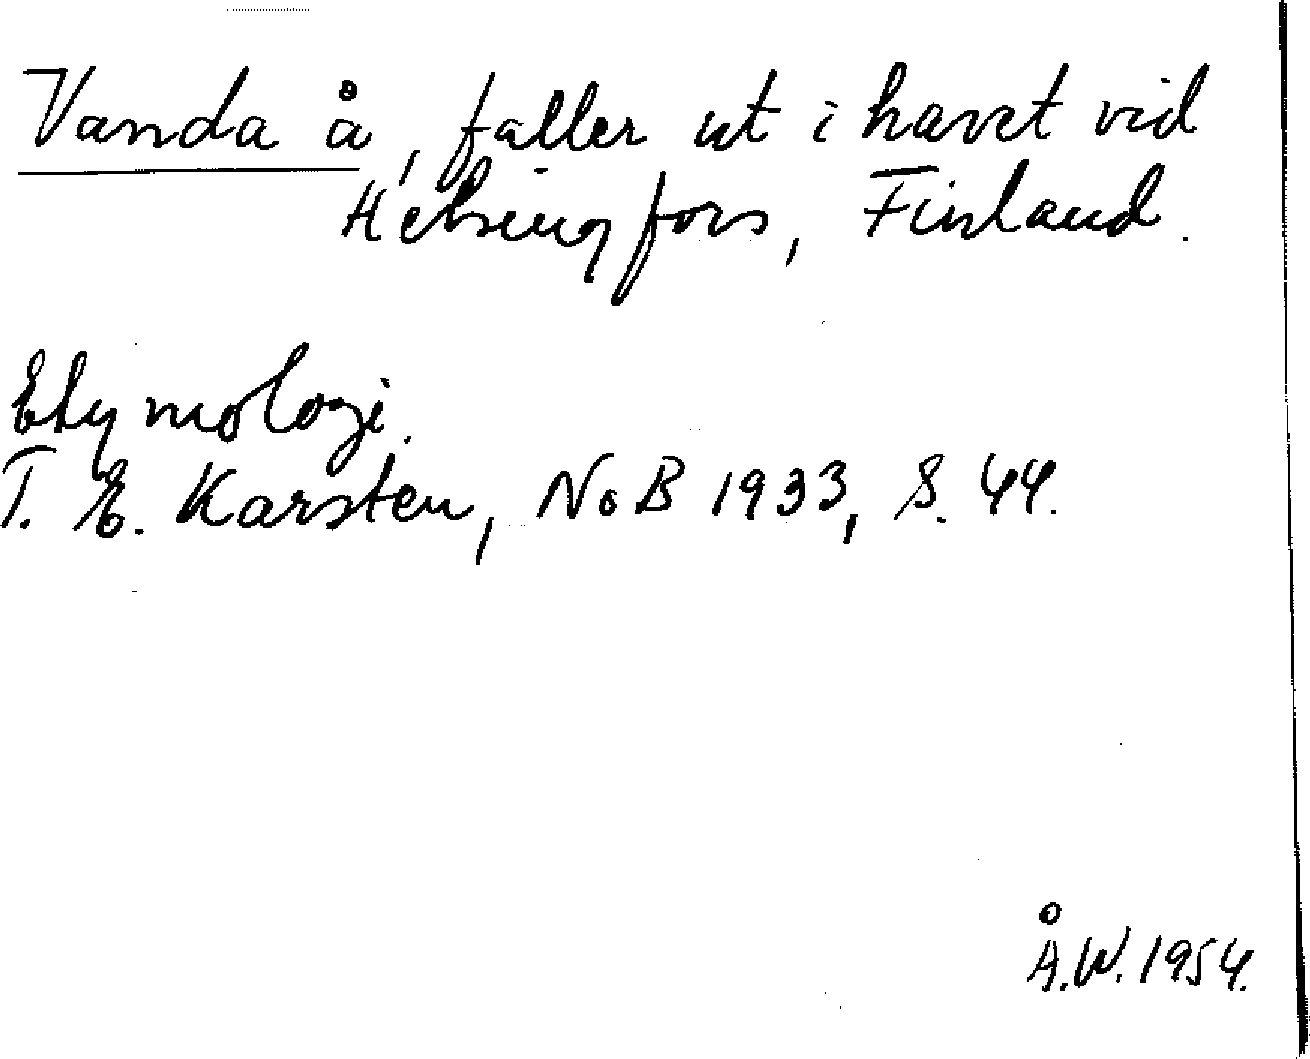 Vanda å, faller ut i havet vid
Helsingfors, Finland.
Etymologi.
T. E. Karsten, NoB 1933, S. 44.
Å.W. 1954.